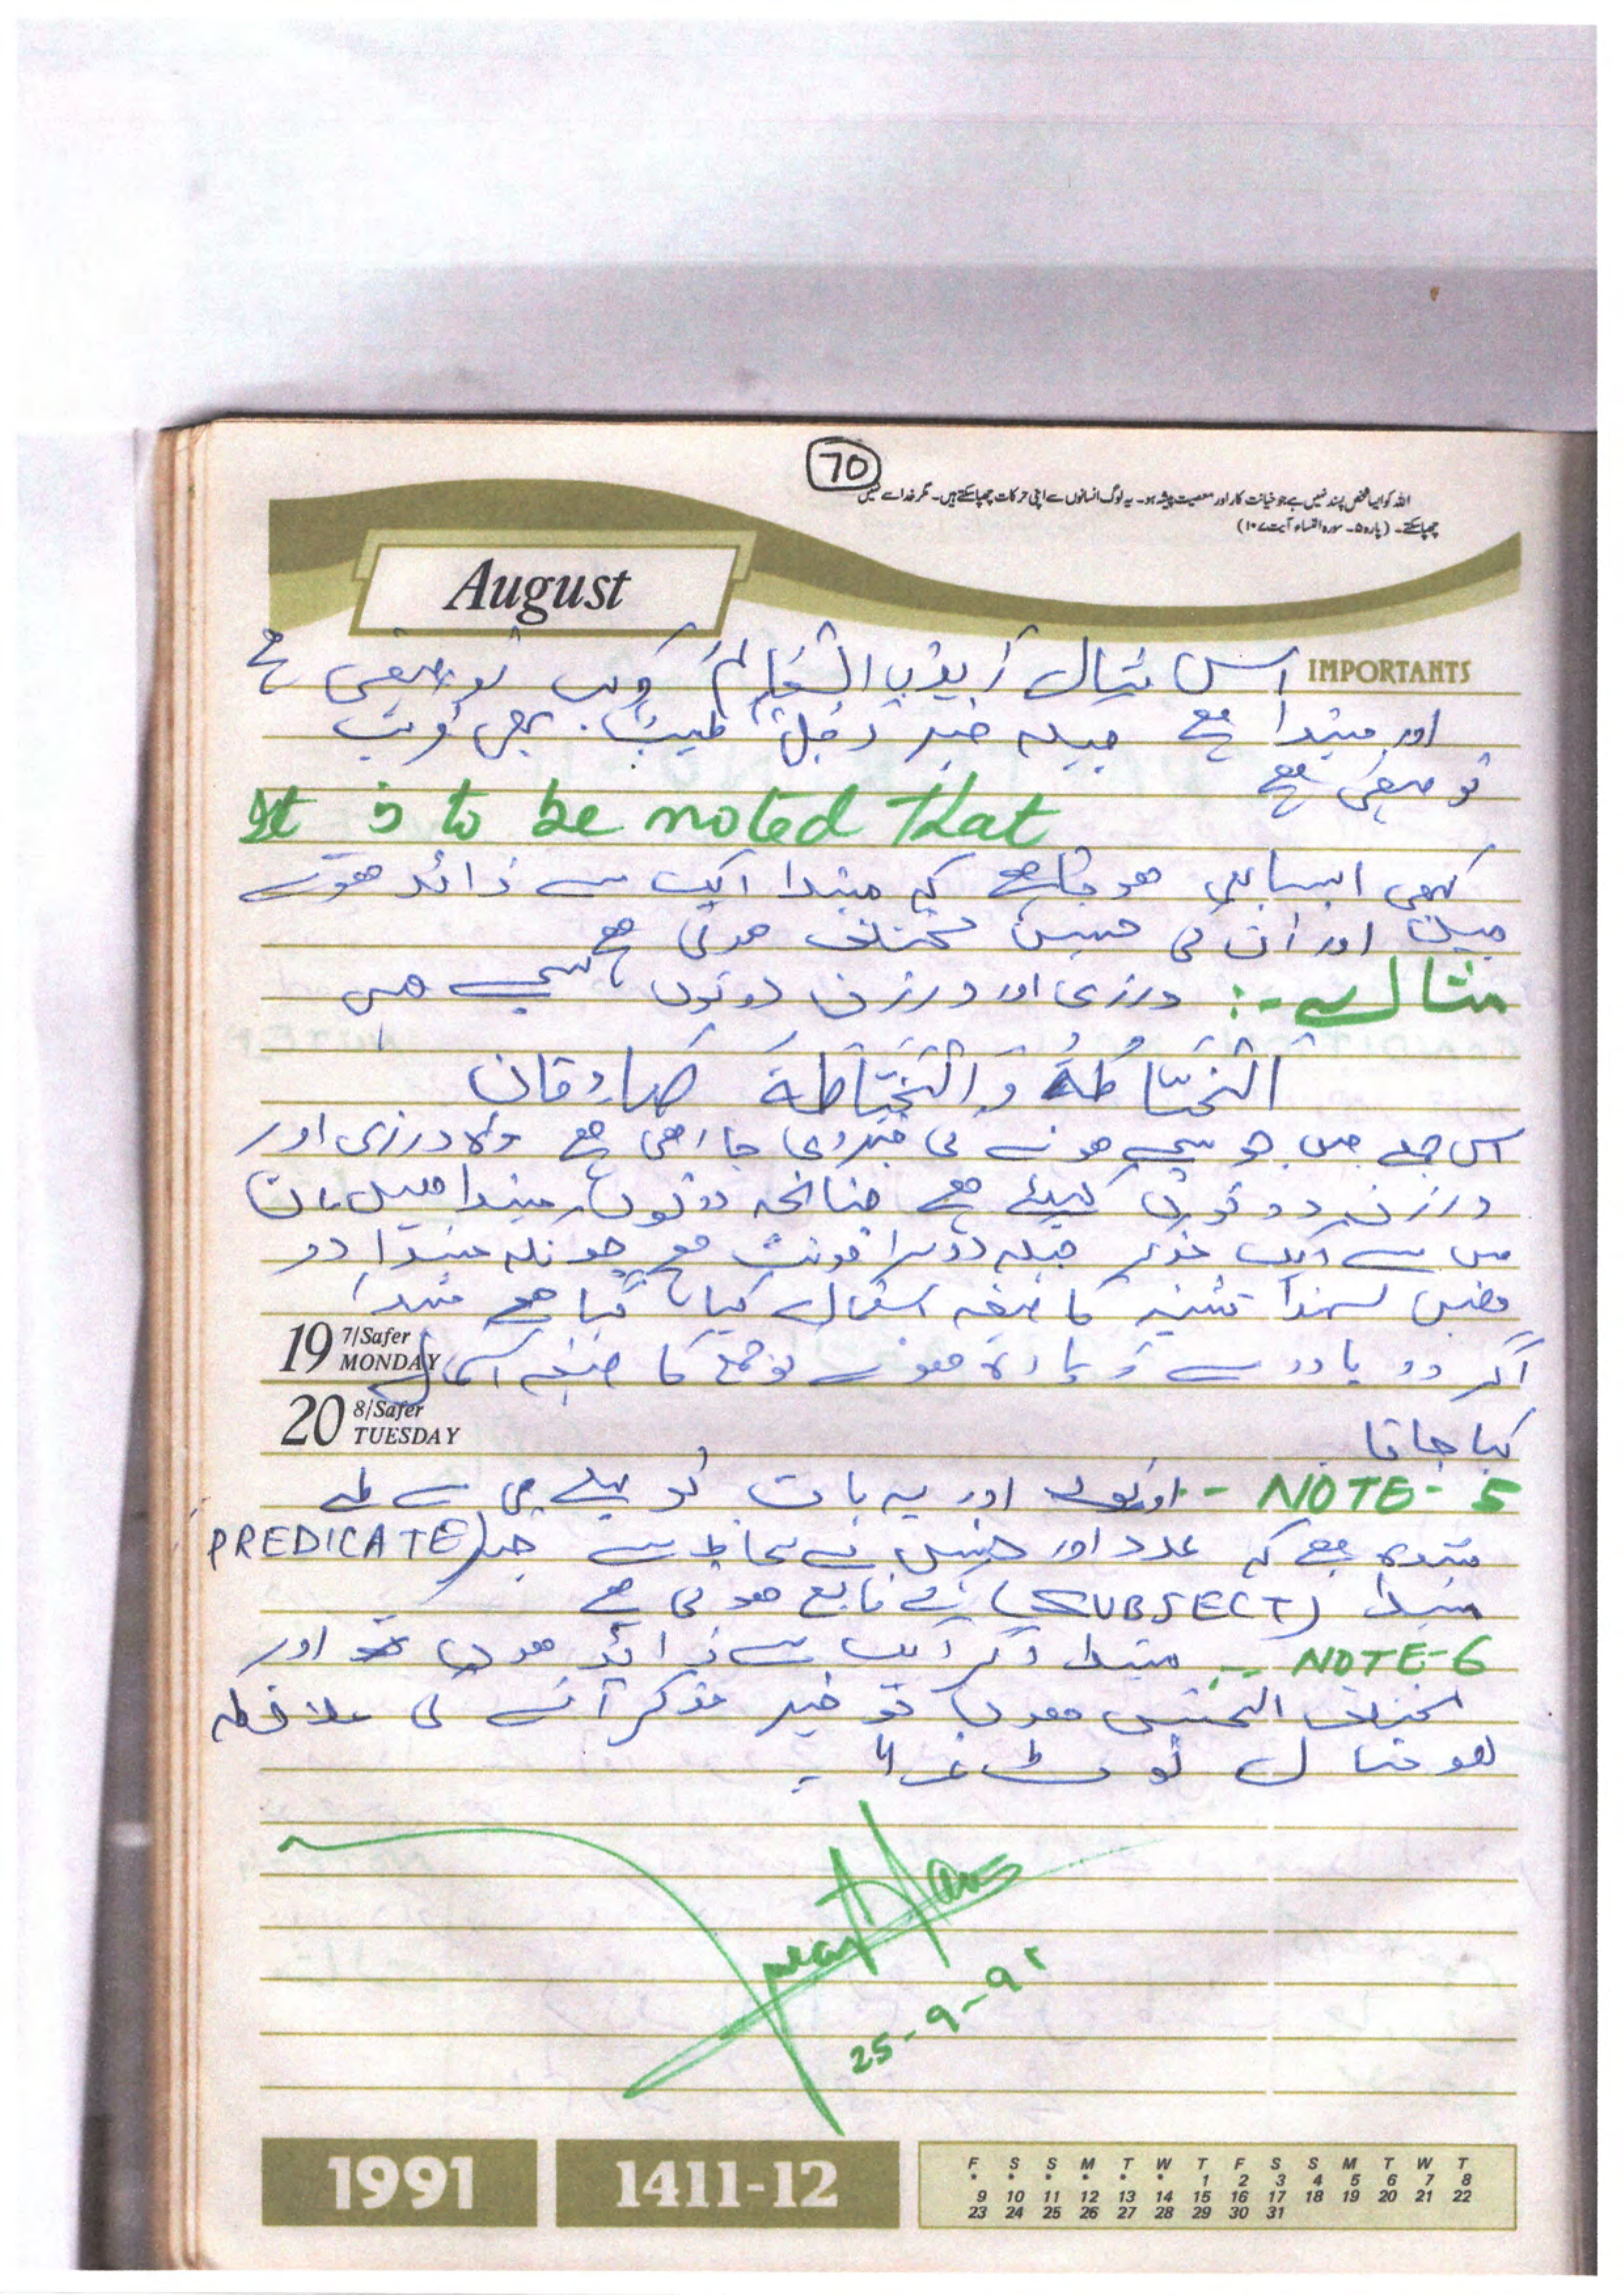 70
اللہ کو ایسا شخص پسند نہیں ہے جو خیانت کار اور معصیت پیشہ ہو۔ یہ لوگ انسانوں سے اپنی حرکات چھپا سکتے ہیں۔ مگر خدا سے نہیں
چھپا سکتے۔ (پارہ ۵۔ سورہ النساء آیت ۱۰۷)
August
IMPORTANTS
اس مثال توصیفی ہے
اور مبتدا ہے جبکہ خبر رجل طیب بھی مرکب
توصیفی ہے
It is to be noted that
کبھی ایسا بھی ہوتا ہے کہ مبتدا ایک سے زائد ہوتے
ہیں اور ان کی جنس مختلف ہوتی ہے
مثال :- درزی اور درزن دونوں سچے ہیں
الخیّاطة وَالخیَّاطة صادقان
اس جملے میں جو سچے ہونے کی خبر دی جا رہی ہے وہ درزی اور
درزن دونوں کیلئے ہے چنانچہ دونوں مبتدا ہیں ان
میں سے ایک مذکر جبکہ دوسرا مونث ہے چونکہ مبتدا دو
ہیں لہذا تثنیہ کا صیغہ استعمال کیا گیا ہے مبتدا
19 7/Safer MONDAY
اگر دو یا دو سے زیادہ ہوتے تو جمع کا صیغہ استعمال
20 8/Safer TUESDAY
کیا جاتا
NOTE-5 - اور یہ بات تو پہلے ہی سے طے
شدہ ہے کہ عدد اور جنس کے لحاظ سے خبر (PREDICATE
مبتدا (SUBJECT) کے تابع ہوتی ہے
NOTE-6 -: مبتدا اگر ایک سے زائد ہوں اور
مختلف الجنس ہوں تو خبر مذکر آئے گی ملاحظہ
ہو مثال نوٹ
25-9-91
1991
1411-12
F S S M T W T F S S M T W T
* * * * * * 1 2 3 4 5 6 7 8
9 10 11 12 13 14 15 16 17 18 19 20 21 22
23 24 25 26 27 28 29 30 31